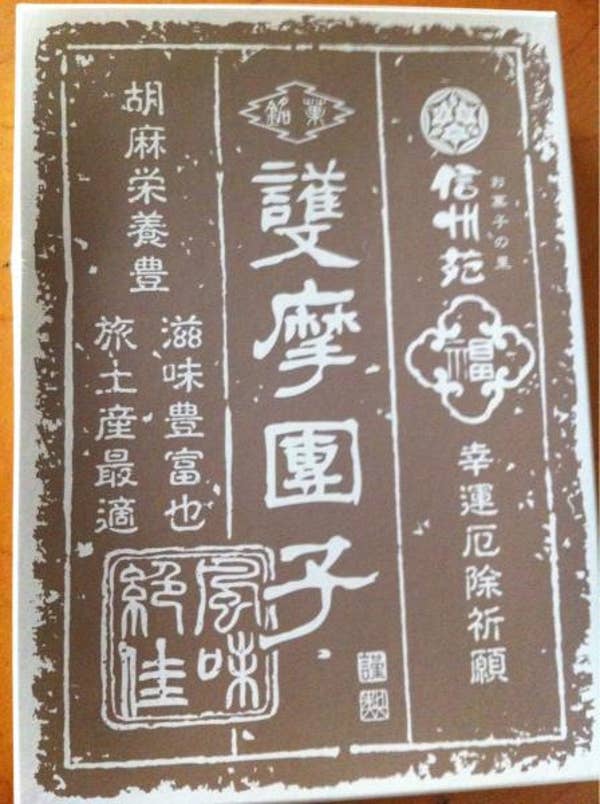 お菓子の里
信州苑
福
幸運厄除祈願
銘菓
護摩團子
謹製
胡麻栄養豊
滋味豊富也
旅土産最適
風味
絶佳